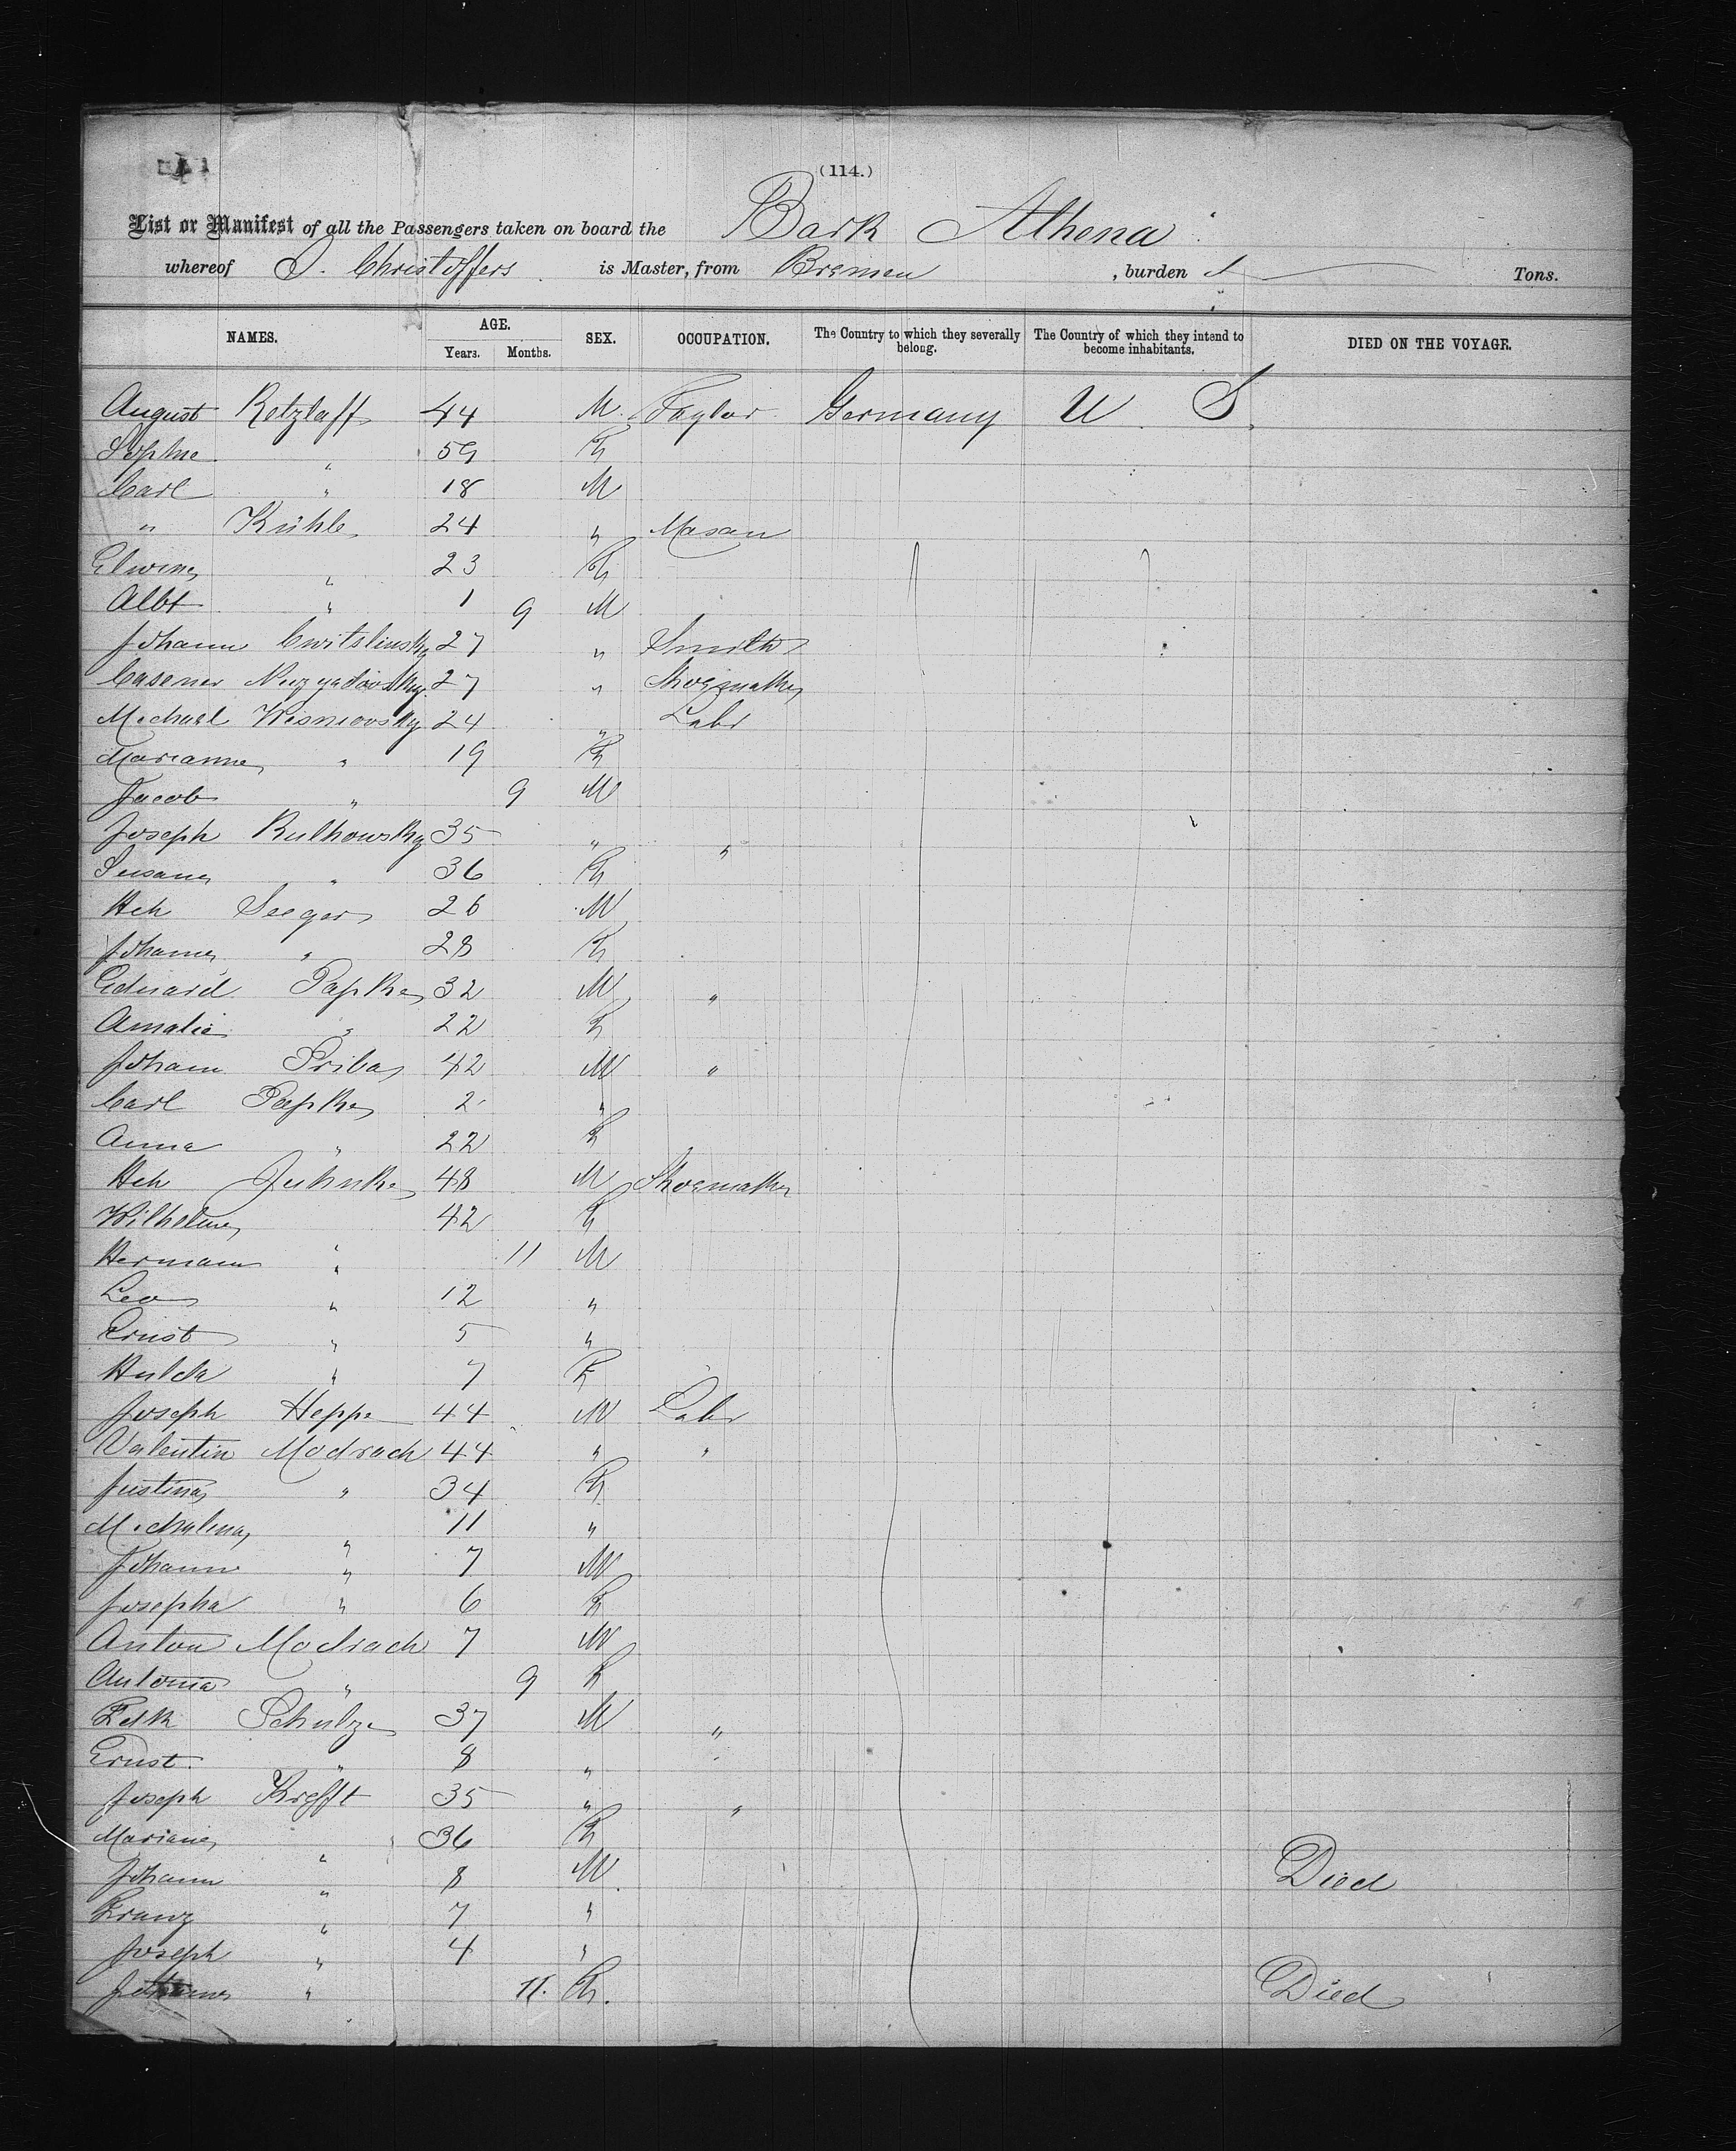 (114.)
List or Manifest of all the Passengers taken on board the Bark Athena
whereof Christoffers is Master, from Bremen , burden Tons.
NAMES. AGE. Years. Months. SEX. OCCUPATION. The Country to which they severally belong. The Country of which they intend to become inhabitants. DIED ON THE VOYAGE.
August Retzlaff 44 M. Taylor Germany U. S.
Sophie " 59 F
Carl " 18 M
" Kühle 24 " Mason
Elwine " 23 F
Albt " 1 9 M
Johann 27 " Smith
Casemer 27 " Shoemaker
Michael Wisniovsky 24 " Labr
Marianne " 19 F
Jacob " 9 M
Joseph 35 " "
Susane " 36 F
Hch Seeger 26 M
Johanne " 28 F
Eduard Papke 32 M "
Amalie " 22 F
Johann Priba 42 M "
Carl Papke 2 "
Anna " 22 F
Hch Juhnke 48 M Shoemaker
Wilhelme " 42 F
Hermann " 11 M
Leo " 12 "
Ernst " 5 "
Hulda " 7 F
Joseph Heppe 44 M Labr
Valentin Modrach 44 " "
Justina " 34 F
Michalina " 11 "
Johann " 7 M
Josepha " 6 F
Anton Modrach 7 M
Antonia " 9 F
Fdk Schulze 37 M "
Ernst " 8 "
Joseph Krefft 35 " "
Mariane " 36 F
Johann " 8 M Died
Franz " 7 "
Joseph " 4 "
Johanne " 11. F. Died